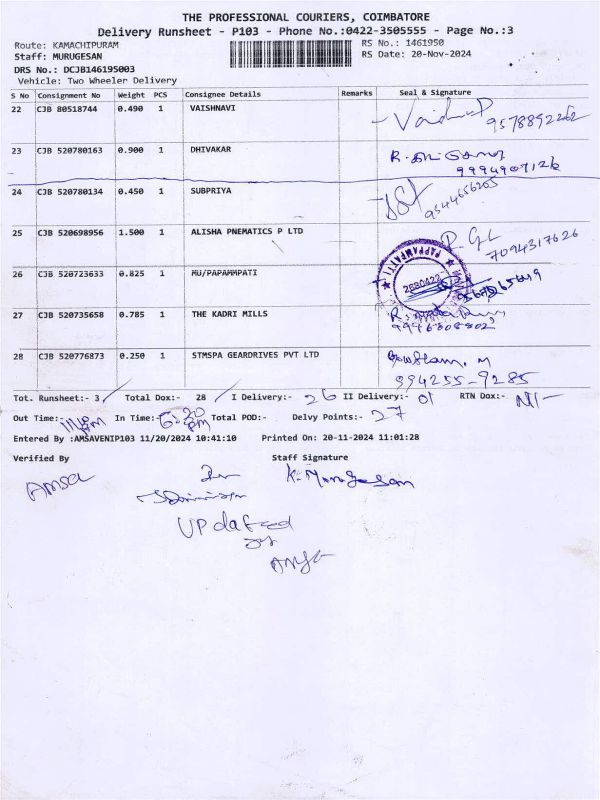 THE PROFESSIONAL COURIERS, COIMBATORE
Delivery Runsheet - P103 - Phone No.:0422-3505555 - Page No.:3
Route: KAMACHIPURAM RS No.: 1461950
Staff: MURUGESAN RS Date: 20-Nov-2024
DRS No.: DCJB146195003
Vehicle: Two Wheeler Delivery
S No Consignment No Weight PCS Consignee Details Remarks Seal & Signature
22 CJB 80518744 0.490 1 VAISHNAVI
9578892262
23 CJB 520780163 0.900 1 DHIVAKAR
9994907126
24 CJB 520780134 0.450 1 SUBPRIYA
9544656205
25 CJB 520698956 1.500 1 ALISHA PNEMATICS P LTD
7094317626
26 CJB 520723633 0.825 1 MU/PAPAMMPATI
PAPPAMPATTI
2680422
27 CJB 520735658 0.785 1 THE KADRI MILLS
9946808802
28 CJB 520776873 0.250 1 STMSPA GEARDRIVES PVT LTD
Gowtham. M
994255-9285
Tot. Runsheet:- 3 Total Dox:- 28 I Delivery:- 26 II Delivery:- 01 RTN Dox:- Nil-
Out Time:- In Time:- 6:20 PM Total POD:- Delvy Points:- 27
Entered By :AMSAVENIP103 11/20/2024 10:41:10 Printed On: 20-11-2024 11:01:28
Verified By Staff Signature
Amsa K. Murugesan
UPdated